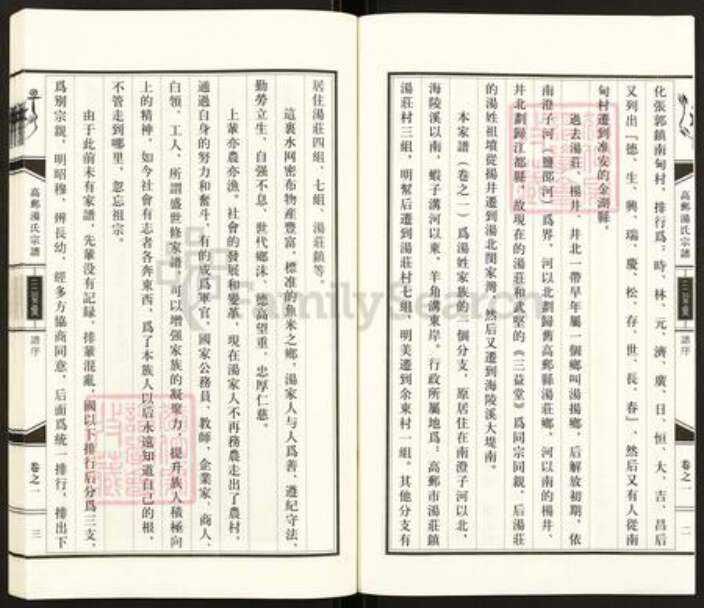 高郵湯氏宗譜
三益堂
譜序
卷之一
二
化張郭鎮南甸村，排行爲：時、林、元、濟、廣、日、恒、大、吉、昌后
又列出「德、生、興、瑞、慶、松、存、世、長、春」，然后又有人從南
甸村遷到准安的金湖縣。
過去湯莊、楊井、井北一帶早年屬一個鄉叫湯揚鄉，后解放初期，依
南澄子河（鹽邵河）爲界，河以北劃歸舊高郵縣湯莊鄉、河以南的楊井、
井北劃歸江都縣，故現在的湯莊和武堅的《三益堂》爲同宗同親，后湯莊
的湯姓祖墳從揚井遷到湯北閔家灣，然后又遷到海陵溪大堤南。
本家譜（卷之一）爲湯姓家族的一個分支，原居住在南澄子河以北，
海陵溪以南，蝦子溝河以東，羊角溝東岸。行政所屬地爲：高郵市湯莊鎮
湯莊村三組，明幫后遷到湯莊村七組，明美遷到余東村一組。其他分支有
居住湯莊四組、七組、湯莊鎮等。
這裏水网密布物產豐富，標准的魚米之鄉，湯家人与人爲善、遵紀守法、
勤勞立生、自强不息、世代鄉沫、德高望重、忠厚仁慈。
上輩亦農亦漁。社會的發展和變革，現在湯家人不再務農走出了農村，
通過自身的努力和奮斗，有的成爲軍官、國家公務員、教師、企業家、商人、
白領、工人，所謂盛世修家譜，可以增强家族的凝聚力，提升族人積極向
上的精神，如今社會有志者各奔東西，爲了本族人以后永遠知道自己的根，
不管走到哪里，忽忘祖宗。
由于此前未有家譜，先輩没有記録，排輩混亂，國以下排行后分爲三支，
爲别宗親，明昭穆，辨長幼，經多方協商同意，后面爲統一排行，排出下
高郵湯氏宗譜
三益堂
譜序
卷之一
三
FamilySearch